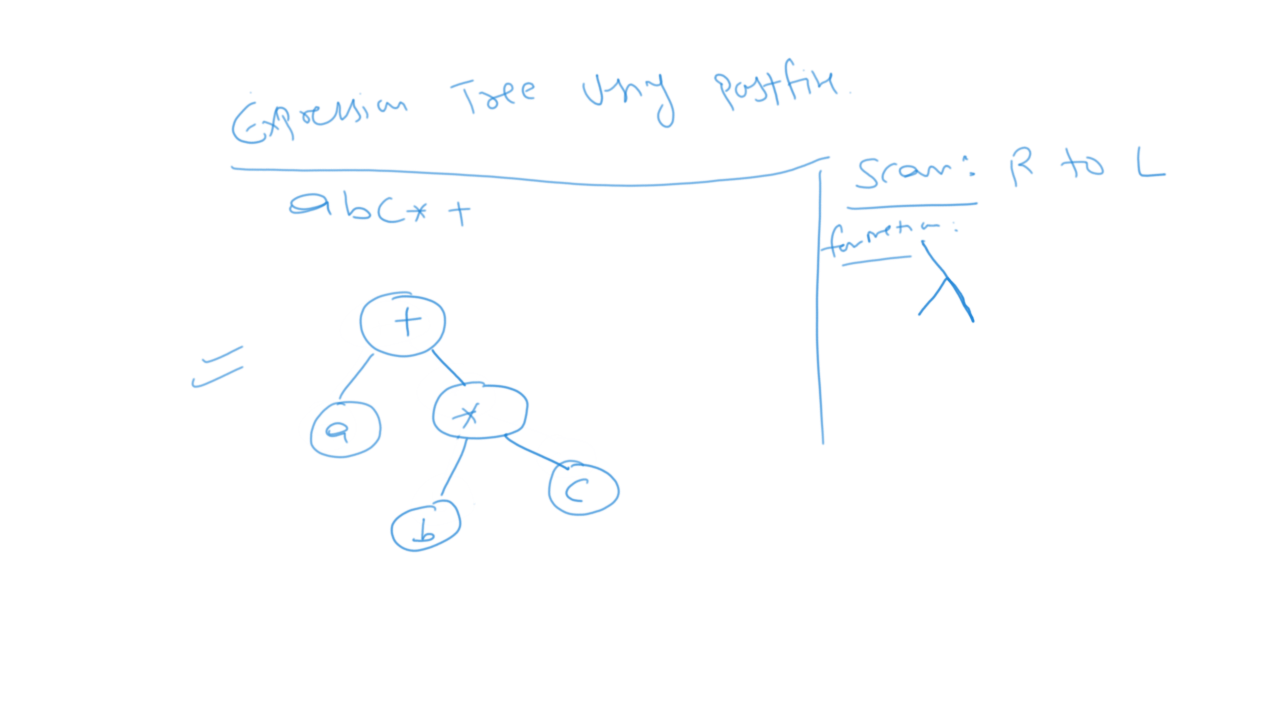 Expression Tree Using Postfix
abc*+
Scan: R to L
formation:
+
a
*
c
b